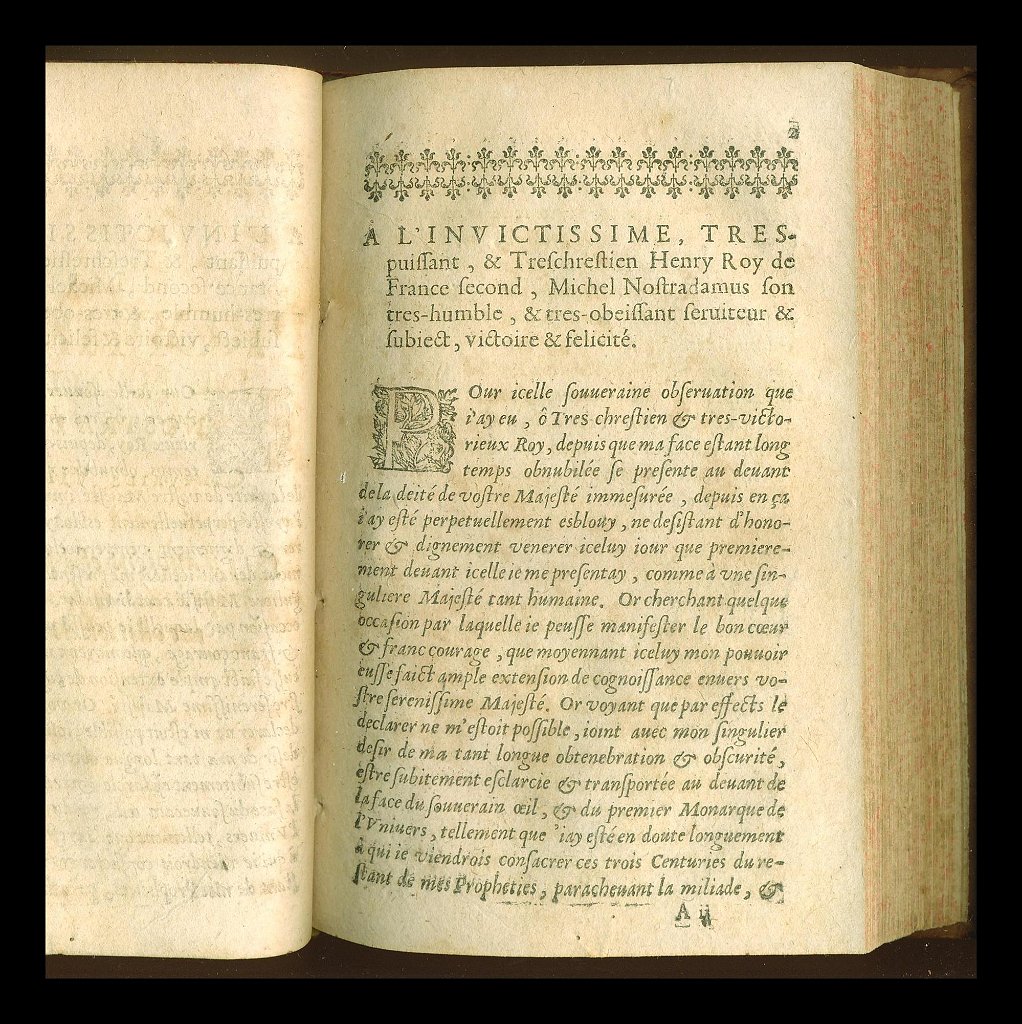 2
A L'INVICTISSIME, TRES-
puiſſant, & Treſchreſtien Henry Roy de
France ſecond, Michel Noſtradamus ſon
tres-humble, & tres-obeiſſant ſeruiteur &
ſubiect, victoire & felicité.
POur icelle ſouueraine obſeruation que
i'ay eu, ô Tres chreſtien & tres-victo-
rieux Roy, depuis que ma face eſtant long
temps obnubilée ſe preſente au deuant
de la deité de voſtre Majeſté immeſurée, depuis en ça
i'ay eſté perpetuellement esblouy, ne deſiſtant d'hono-
rer & dignement venerer iceluy iour que premiere-
ment deuant icelle ie me preſentay, comme à vne ſin-
guliere Majeſté tant humaine. Or cherchant quelque
occaſion par laquelle ie peuſſe manifeſter le bon cœur
& franc courage, que moyennant iceluy mon pouuoir
euſſe faict ample extenſion de cognoiſſance enuers vo-
ſtre ſereniſſime Majeſté. Or voyant que par effects le
declarer ne m'eſtoit poſſible, ioint auec mon ſingulier
deſir de ma tant longue obtenebration & obſcurité,
eſtre ſubitement eſclarcie & tranſportée au deuant de
la face du ſouuerain œil, & du premier Monarque de
l'Vniuers, tellement que 'iay eſté en doute longuement
à qui ie viendrois conſacrer ces trois Centuries du re-
ſtant de mes Propheties, paracheuant la miliade, &
A ij